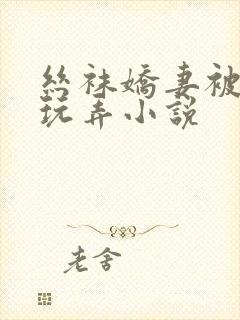 絲袜嬌妻被
玩弄小説
老舍